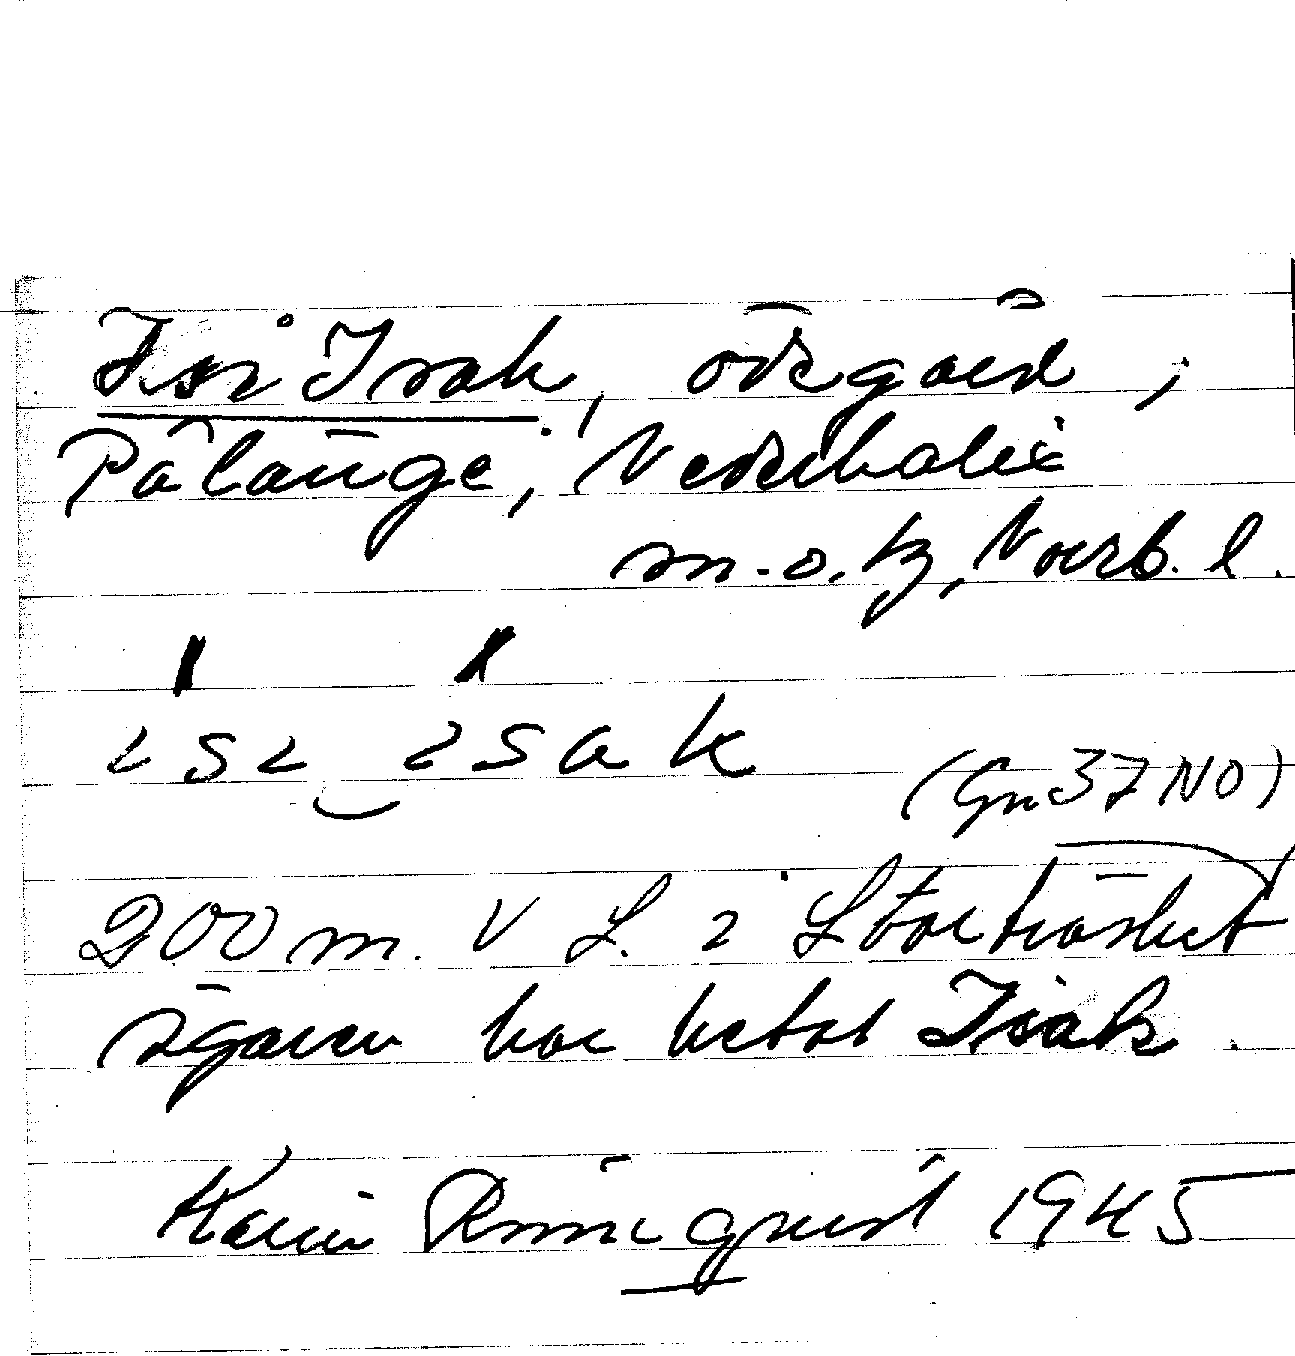 Isi Isak, ödegård,
Pålänge, Nederkalix
m. o. tg, Norrb. l.
isi isak
(Gn 37 NO)
200 m. V S. i Storträsket
ägaren har hetat Isak.
Karin Rönnqvist 1945